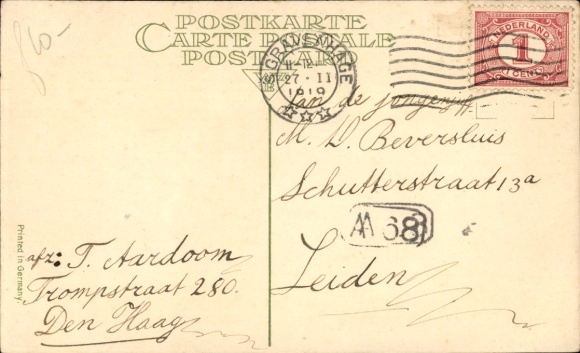 POSTKARTE
CARTE POSTALE
POSTCARD
'S GRAVENHAGE
27 · II
1919
NEDERLAND
1
CENT
Aan de jongejff.
M. D. Beversluis
Schutterstraat 13a
68
Leiden
afz: T. Aardoom
Trompstraat 280.
Den Haag
Printed in Germany.